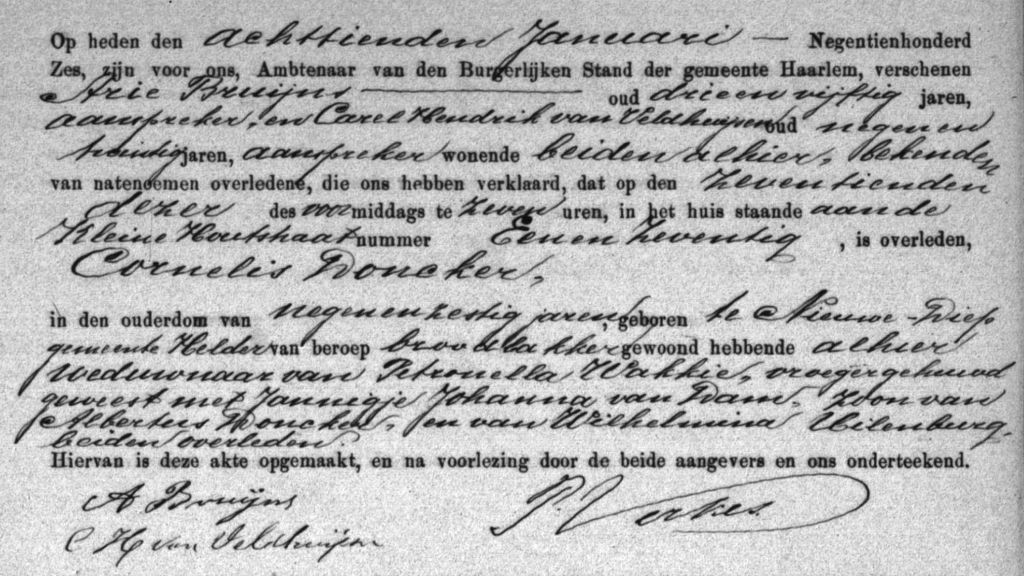 Op heden den achttienden Januari — Negentienhonderd
Zes, zijn voor ons, Ambtenaar van den Burgerlijken Stand der gemeente Haarlem, verschenen
Arie Bruijns oud drieenvijftig jaren,
aanspreker, en Carel Hendrik van Veldhuijsen oud negenen
twintig jaren, aanspreker wonende beiden alhier, bekenden
van natenoemen overledene, die ons hebben verklaard, dat op den zeventienden
dezer des voormiddags te zeven uren, in het huis staande aan de
Kleine Houtstraat nummer Eenenzeventig, is overleden,
Cornelis Doncker,
in den ouderdom van negenenzestig jaren, geboren te Nieuwe-Diep
gemeente Helder van beroep broodbakker gewoond hebbende alhier
weduwnaar van Petronella Wakkie, vroeger gehuwd
geweest met Jannegje Johanna van Dam, zoon van
Albertus Doncker, en van Wilhelmina Uilenburg,
beiden overleden.
Hiervan is deze akte opgemaakt, en na voorlezing door de beide aangevers en ons onderteekend.
A Bruijns
P. Verkes
C H van Veldhuijsen